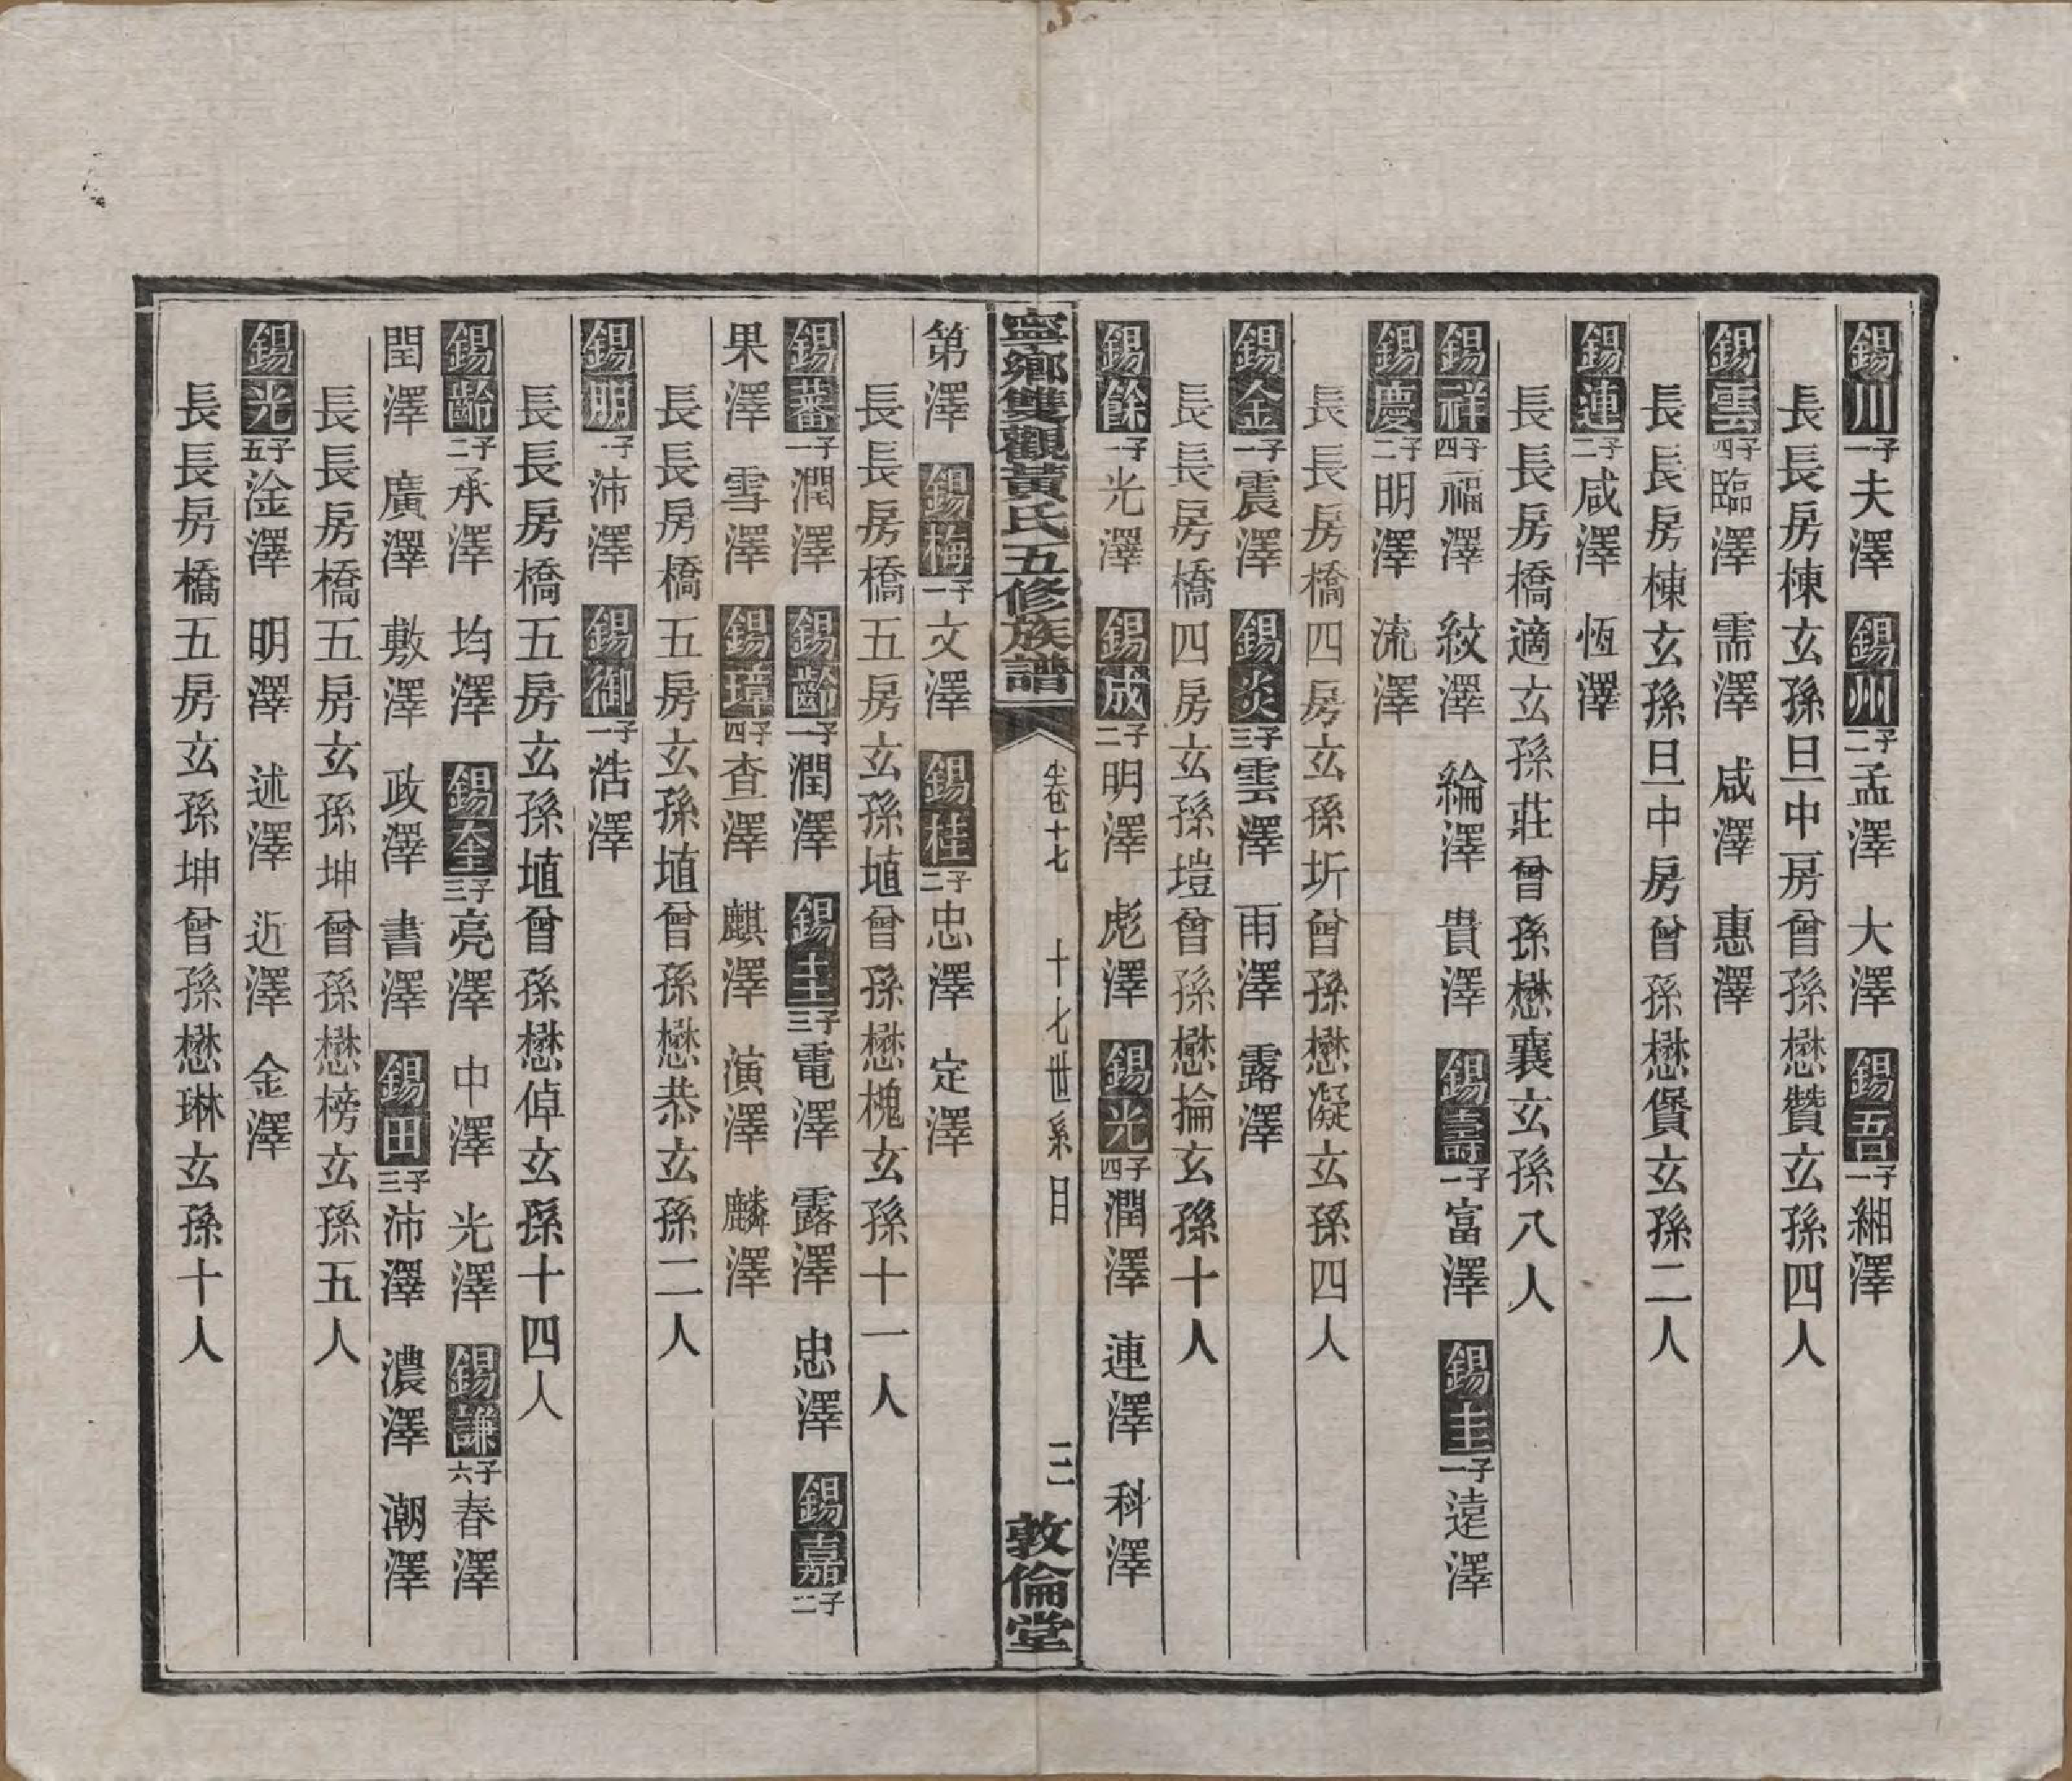 錫川子一夫澤　錫州子二孟澤　大澤　錫吾子一緗澤
長長房棟玄孫旦中房曾孫懋贊玄孫四人
錫雲子四臨澤　需澤　咸澤　惠澤
長長房棟玄孫旦中房曾孫懋贇玄孫二人
錫連子二咸澤　恆澤
長長房橋適玄孫莊曾孫懋襄玄孫八人
錫祥子四福澤　紋澤　綸澤　貴澤　錫壽子一富澤　錫圭子一遠澤
錫慶子二明澤　流澤
長長房橋四房玄孫圻曾孫懋凝玄孫四人
錫金子一震澤　錫炎子三雲澤　雨澤　露澤
長長房橋四房玄孫塏曾孫懋掄玄孫十人
錫餘子一光澤　錫成子二明澤　彪澤　錫光子四潤澤　連澤　科澤
寧鄉雙觀黃氏五修族譜　卷十七　十七世系目　三　敦倫堂
第澤　錫梅子一文澤　錫桂子二忠澤　定澤
長長房橋五房玄孫埴曾孫懋槐玄孫十一人
錫蕃子一潤澤　錫齡子一潤澤　錫圭子三電澤　露澤　忠澤　錫嘉子二
果澤　雪澤　錫璋子四查澤　麒澤　演澤　麟澤
長長房橋五房玄孫埴曾孫懋恭玄孫二人
錫明子一沛澤　錫御子一浩澤
長長房橋五房玄孫埴曾孫懋倬玄孫十四人
錫齡子二承澤　均澤　錫奎子三亮澤　中澤　光澤　錫謙子六春澤
閏澤　廣澤　敷澤　政澤　書澤　錫田子三沛澤　濃澤　潮澤
長長房橋五房玄孫坤曾孫懋榜玄孫五人
錫光子五淦澤　明澤　述澤　近澤　金澤
長長房橋五房玄孫坤曾孫懋琳玄孫十人